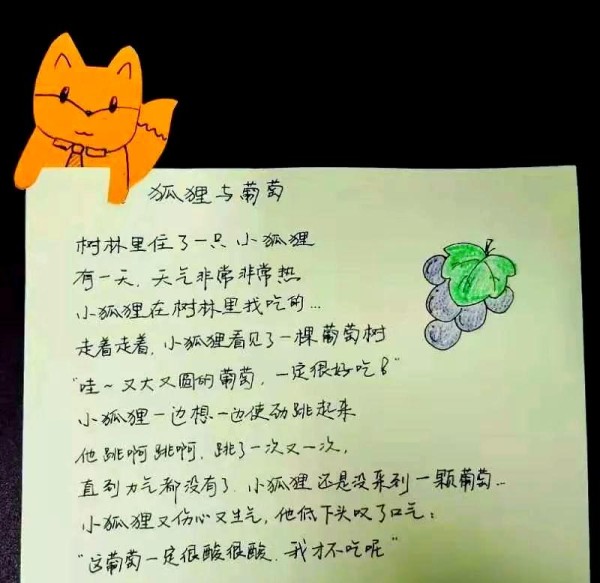 狐狸与葡萄
树林里住了一只小狐狸
有一天，天气非常非常热
小狐狸在树林里找吃的...
走着走着，小狐狸看见了一棵葡萄树
"哇~又大又圆的葡萄，一定很好吃!"
小狐狸一边想一边使劲跳起来
他跳啊跳啊，跳了一次又一次，
直到力气都没有了，小狐狸还是没采到一颗葡萄...
小狐狸又伤心又生气，他低下头叹了口气：
"这葡萄一定很酸很酸，我才不吃呢"